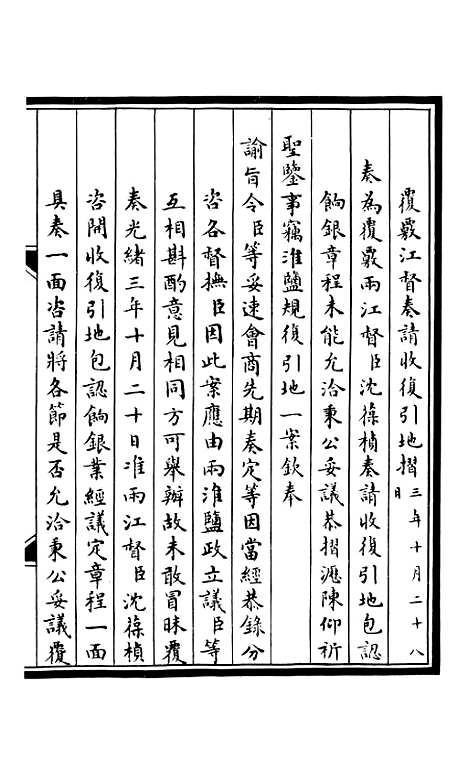 覆覈江督奏請收復引地摺三年十月二十八日
奏為覆覈兩江督臣沈葆楨奏請收復引地包認
餉銀章程未能允洽秉公妥議恭摺瀝陳仰祈
聖鑒事竊淮鹽規復引地一案欽奉
諭旨令臣等妥速會商先期奏定等因當經恭錄分
咨各督撫臣因此案應由兩淮鹽政立議臣等
互相斟酌意見相同方可舉辦故未敢冒昧覆
奏光緒三年十月二十日准兩江督臣沈葆楨
咨開收復引地包認餉銀業經議定章程一面
具奏一面咨請將各節是否允洽秉公妥議覆